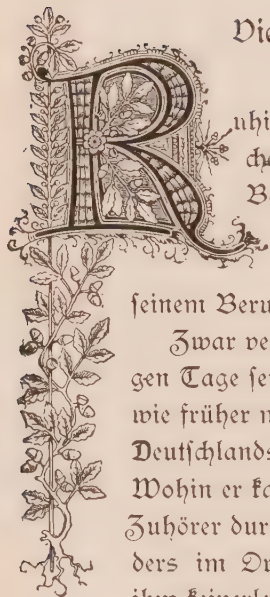 Die
Ruhi
che
B
seinem Beru
Zwar ve
gen Tage sei
wie früher n
Deutschlands
Wohin er ka
Zuhörer dur
ders im Dr